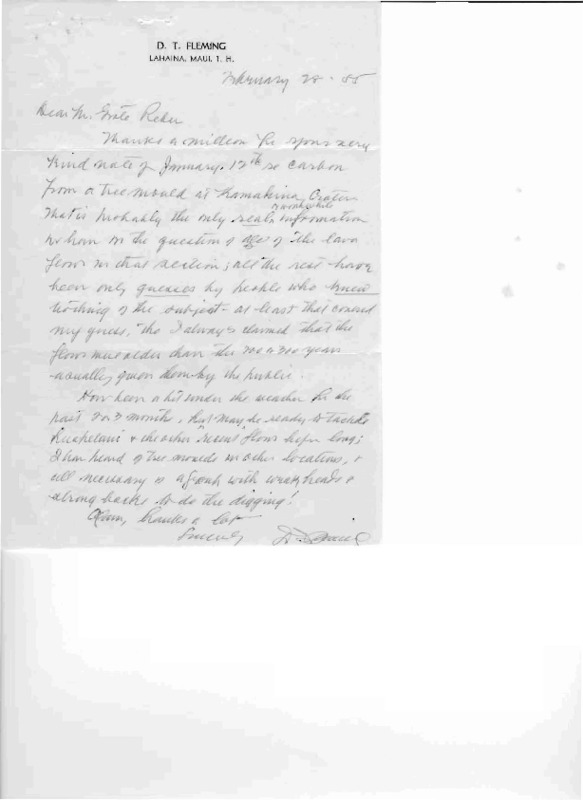 D. T. FLEMING
LAHAINA, MAUI, T. H.
February 28 - 55
Dear Mr.
Thanks a million for your very
kind note of January 12th re carbon
from a tree mould at Crater
That is probably the only real information
we have on the question of age of the lava
flows in that section; all the rest have
been only guesses by people who knew
nothing of the subject - at least that covered
my guess, tho I always claimed that the
flows were older than the 200 a 300 years
usually given them by the public.
Have been a bit under the weather for the
past 2 or 3 months, but may be ready to tackle
& the other recent flows before long;
I have heard of tree moulds in other locations, &
all necessary is a with weak heads &
strong backs to do the digging!
Again, thanks a lot
Sincerely